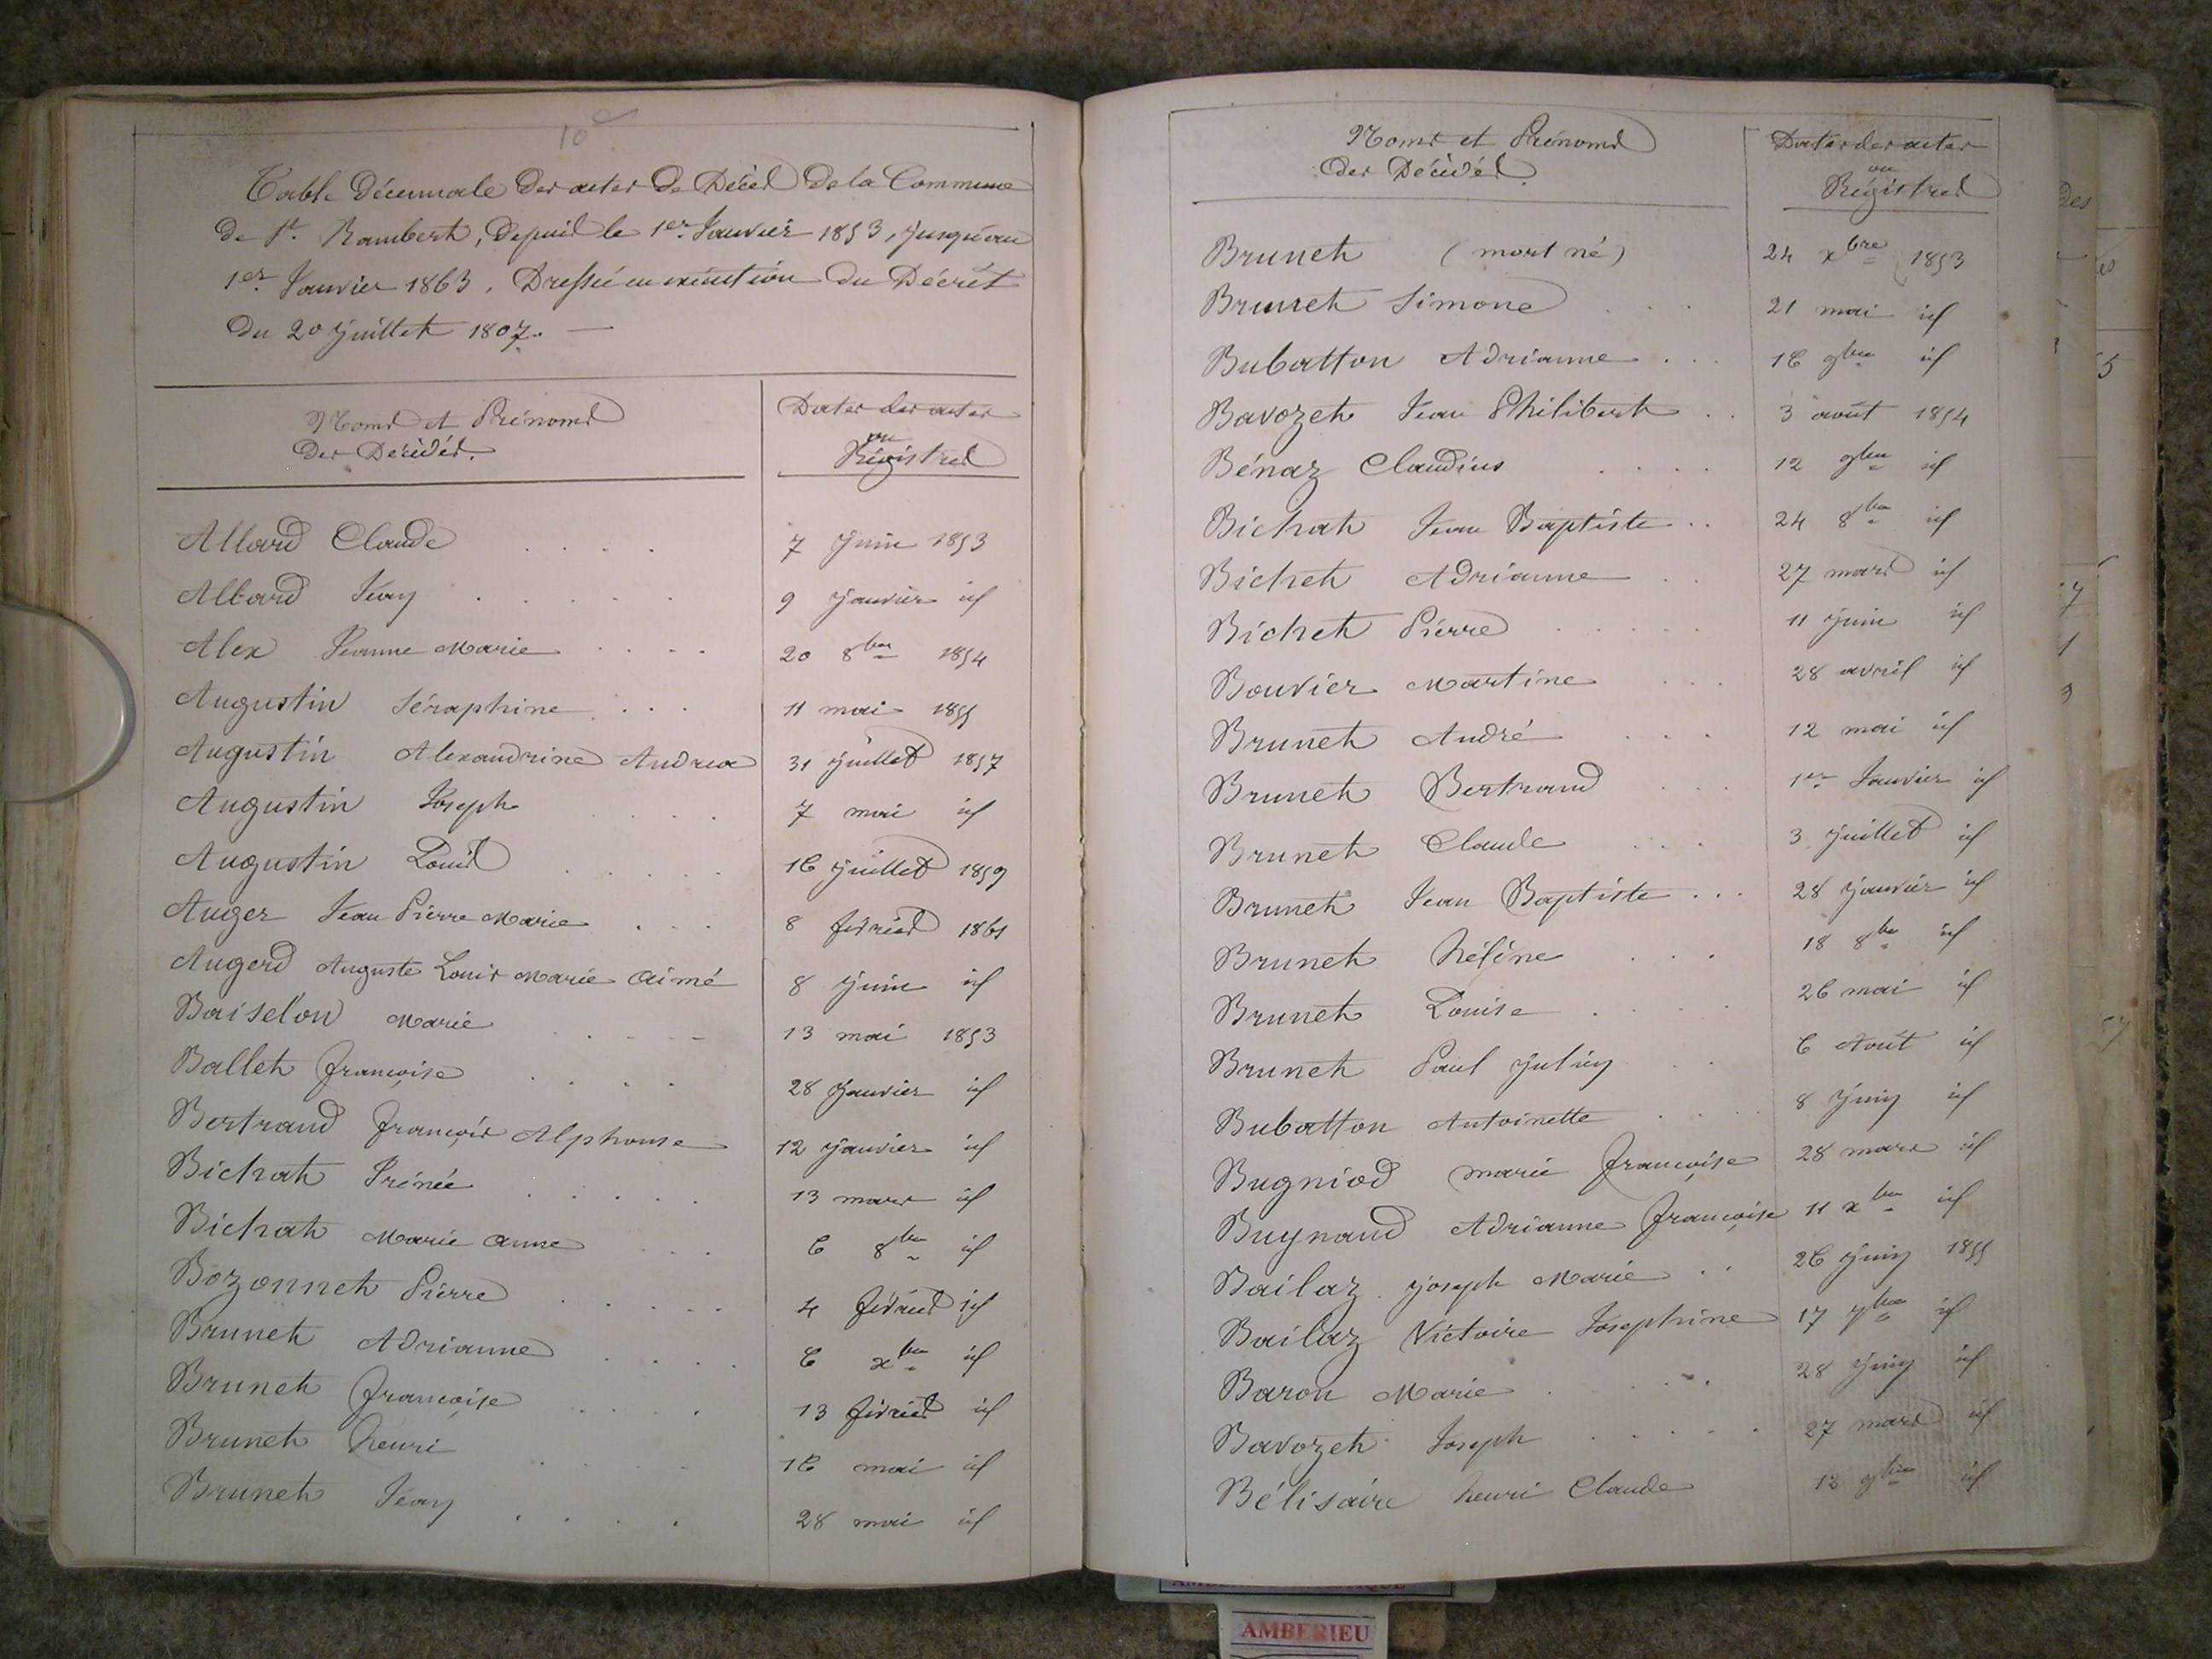 Table Décennale des actes de Décès de la Commune
de St. Rambert, Depuis le 1er. Janvier 1853, jusqu'au
1er. Janvier 1863. Dressée en exécution du Décret
du 20 Juillet 1807. —
Noms et Prénoms
des Décédés.
Dates des actes
ou
Régistres
Allard Claude .... 7 Juin 1853
Allard Jean ..... 9 Janvier id
Alex Jeanne Marie .... 20 8bre 1854
Augustin Séraphine .... 11 mai 1855
Augustin Alexandrine Andrea 31 Juillet 1857
Augustin Joseph .... 7 mai id
Augustin Louis ..... 16 Juillet 1859
Auger Jean Pierre Marie ... 8 février 1861
Augerd Auguste Louis Marie Aimé 8 Juin id
Baiselon Marie .... 13 mai 1853
Ballet françoise .... 28 Janvier id
Bertrand françois Alphonse 12 Janvier id
Bichat Irénée ..... 13 mars id
Bichat Marie Anne ... 6 8bre id
Bozonnet Pierre ..... 4 février id
Brunet Adrianne .... 6 xbre id
Brunet françoise .... 13 février id
Brunet henri .... 16 mai id
Brunet Jean .... 28 mai id
Noms et Prénoms
des Décédés.
Dates des actes
ou
Régistres
Brunet (mort né) 24 xbre 1853
Brunet Simone ... 21 mai id
Bubatton Adrianne ... 16 9bre id
Bavozet Jean Philibert .. 3 août 1854
Bénaz Claudius .... 12 9bre id
Bichat Jean Baptiste .. 24 8bre id
Bichet Adrianne .. 27 mars id
Bichet Pierre ..... 11 Juin id
Bouvier Martine ... 28 avril id
Brunet André ... 12 mai id
Brunet Bertrand ... 1er Janvier id
Brunet Claude ... 3 Juillet id
Brunet Jean Baptiste ... 28 Janvier id
Brunet hélène ... 18 8bre id
Brunet Louise .... 26 mai id
Brunet Paul Julien .. 6 Août id
Bubatton Antoinette .... 8 Juin id
Bugniod marie françoise 28 mars id
Buynand Adrianne françoise 11 xbre id
Bailaz Joseph Marie .. 26 Juin 1855
Bailaz Victoire Josephine 17 7bre id
Baron Marie .... 28 Juin id
Bavozet Joseph ..... 27 mars id
Bélisaire henri Claude 12 9bre id
AMBERIEU